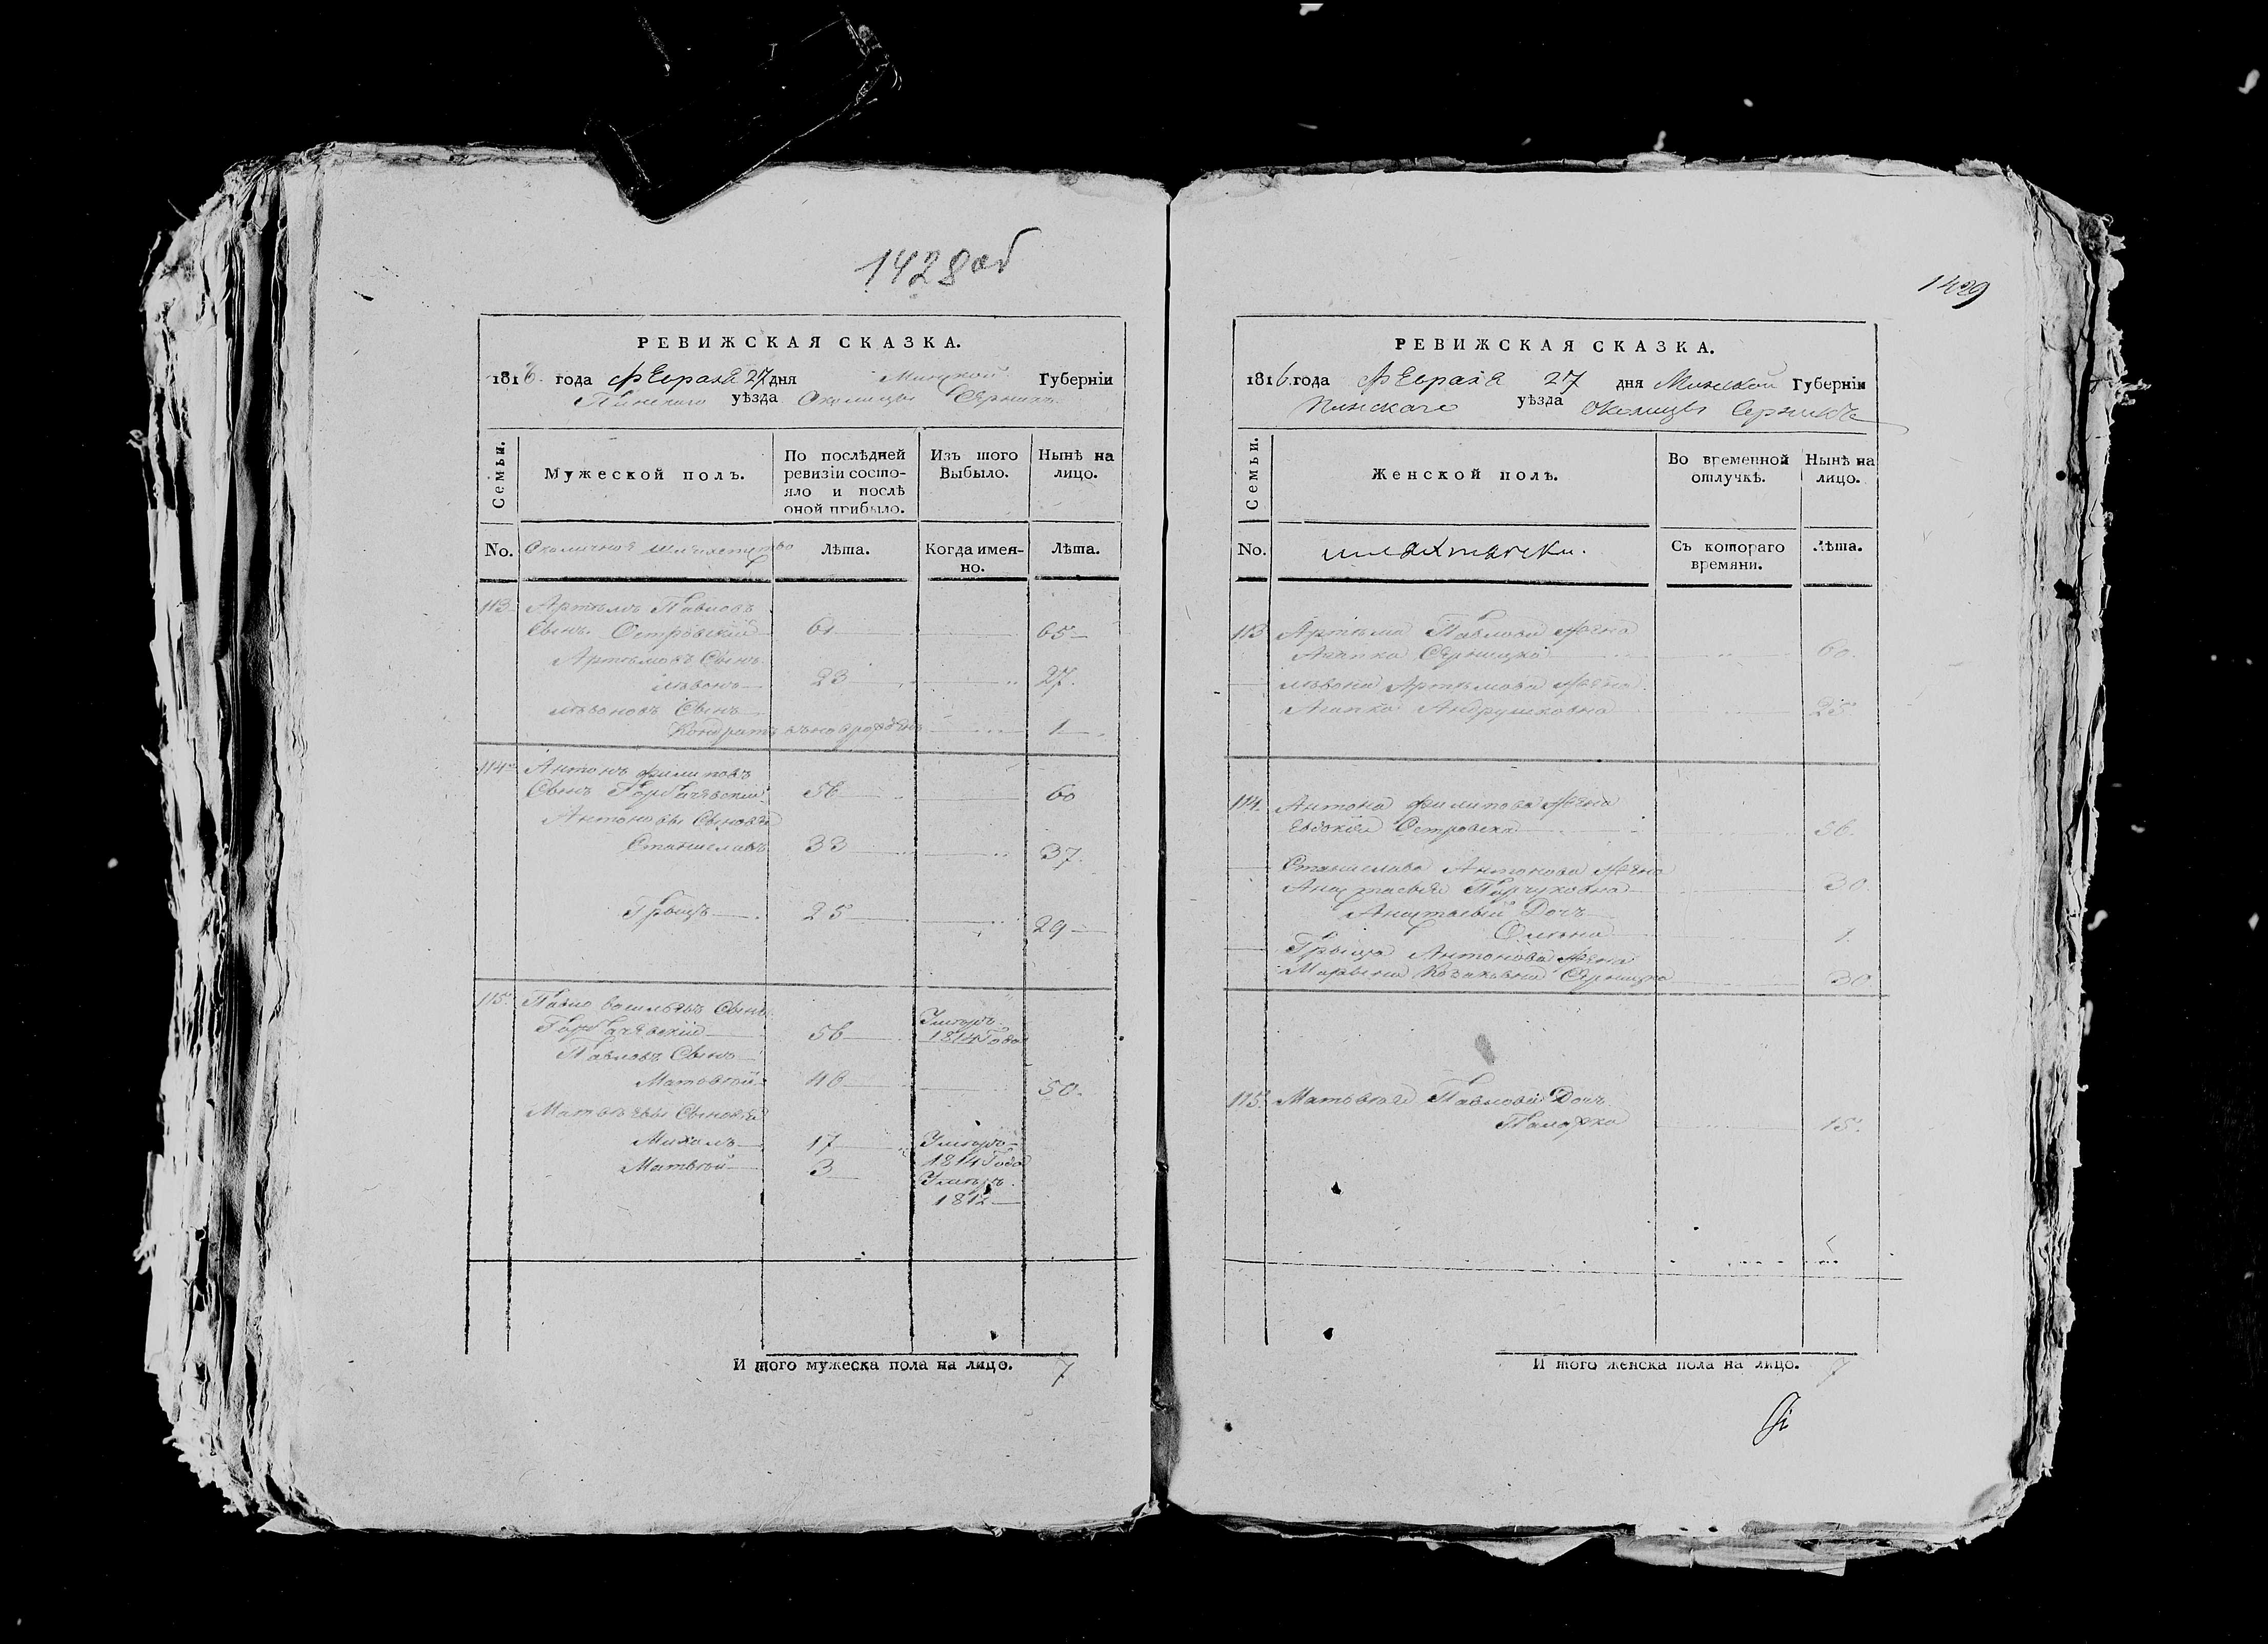 1428об
РЕВИЖСКАЯ СКАЗКА.
1816. года февраля 27 дня Минской Губерніи
Пинского уѣзда Околицы Серникъ
Семьи.
Мужеской полъ.
По послѣдней ревизіи состояло и послѣ оной прибыло.
Изъ того Выбыло.
Нынѣ на лицо.
No. Околичная шляхетство
Лѣта.
Когда имянно.
Лѣта.
113 Артѣмъ Павловъ
Сынъ Островскій 61 65
Артѣмовъ Сынъ
Лѣвонъ 23 27
Лѣвоновъ Сынъ
Кондратъ вьноврожденъ 1
114 Антонъ Филиповъ
Сынъ Горбачевскій 56 60
Антоновы Сыновья
Станиславъ 33 37
Грыцъ 25 29
115 Павло Васильевъ Сынъ
Горбачевскій 56 Умеръ 1814 Года
Павловъ Сынъ
Матвѣй 46 50
Матвѣевы Сыновья
Михалъ 17 Умеръ 1814 Года
Матвѣй 3 Умеръ 1812
И того мужеска пола на лицо. 7
1429
РЕВИЖСКАЯ СКАЗКА.
1816. года февраля 27 дня Минской Губерніи
Пинскаго уѣзда Околицы Серникъ
Семьи.
Женской полъ.
Во временной отлучкѣ.
Нынѣ на лицо.
No. шляхтянки.
Съ котораго времяни.
Лѣта.
113 Артѣма Павлова жена
Агапка Серницка 60
Лѣвона Артѣмова жена
Агапка Андрушковна 25
114 Антона Филипова жена
Евдокія Островска 56
Станислава Антонова жена
Анастасія 30
Анастасьи Дочь
Олена 1
Грыца Антонова жена
Марьяна Козаковна Серницка 30
115 Матвѣя Павлова Дочь
Паларка 15
И того женска пола на лицо. 7